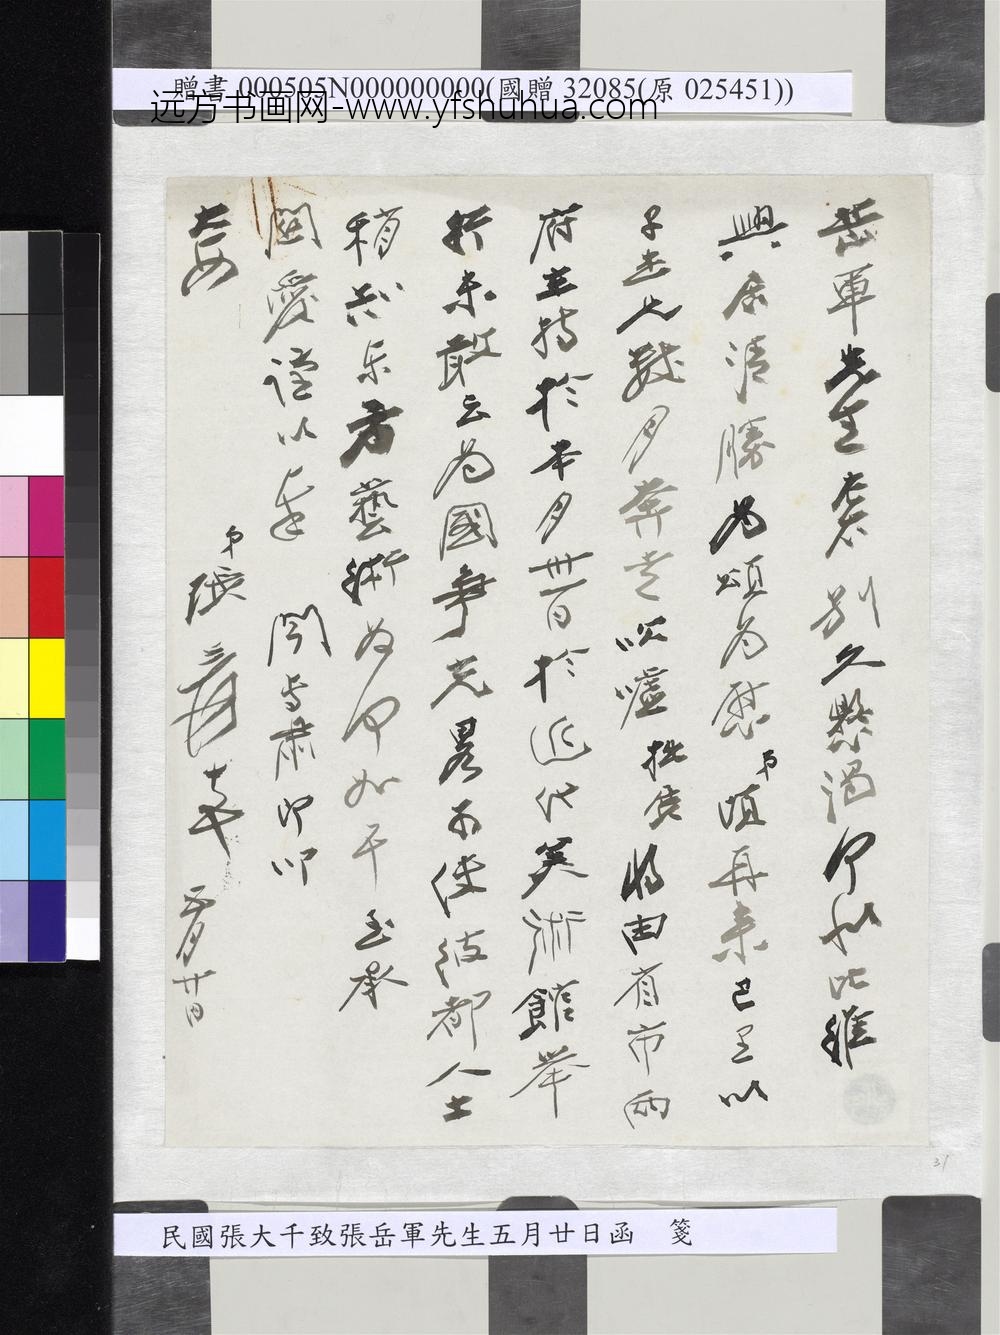 贈書 000505N000000000(國贈 32085(原 025451))
远方书画网-www.yfshuhua.com
岳軍先生袞別久懸渴何似比維
興居清勝為頌為慰弟頃再來巴里以
子杰兄數月奔走吹噓拙展將由省市兩
府主持於本月卅一日於近代美術館舉
行未敢云為國爭光畧示使彼都人士
稍知東方藝術為何如干至承
關愛謹以奉聞專肅叩叩
大安
弟張爰 五月廿日
31
民國張大千致張岳軍先生五月廿日函 箋